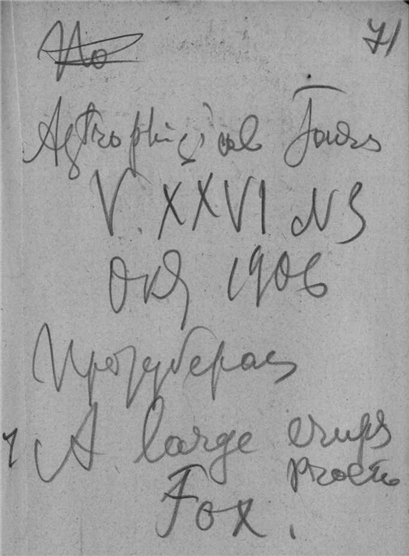 71
Astrophisical Journ
V. XXVI N3
Окт 1906
Протуберанц
A large erup
Fox.